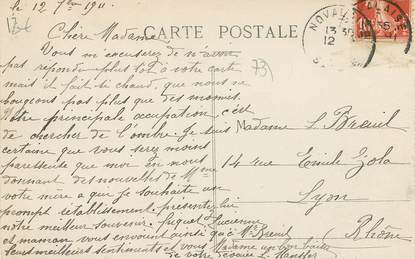 le 12 7bre 1911.
CARTE POSTALE
Chère Madame
Vous m'excuserez de n'avoir
pas répondu plus tôt à votre carte
mais il fait si chaud, que nous ne
bougeons pas plus que des momies.
Notre principale occupation, c'est
de chercher de l'ombre. Je suis
certaine que vous serez moins
paresseuse que moi en nous
donnant des nouvelles de Mme
votre mère a qui je souhaite un
prompt rétablissement, présentez lui
notre meilleur souvenir. Lucienne
et maman vous envoient ainsi qu'à Mr Breuil
leurs meilleurs sentiments et vous
Madame un bon baiser
de votre dévouée L.
Madame L. Breuil
14 rue Emile Zola
Lyon
Rhône
13
12